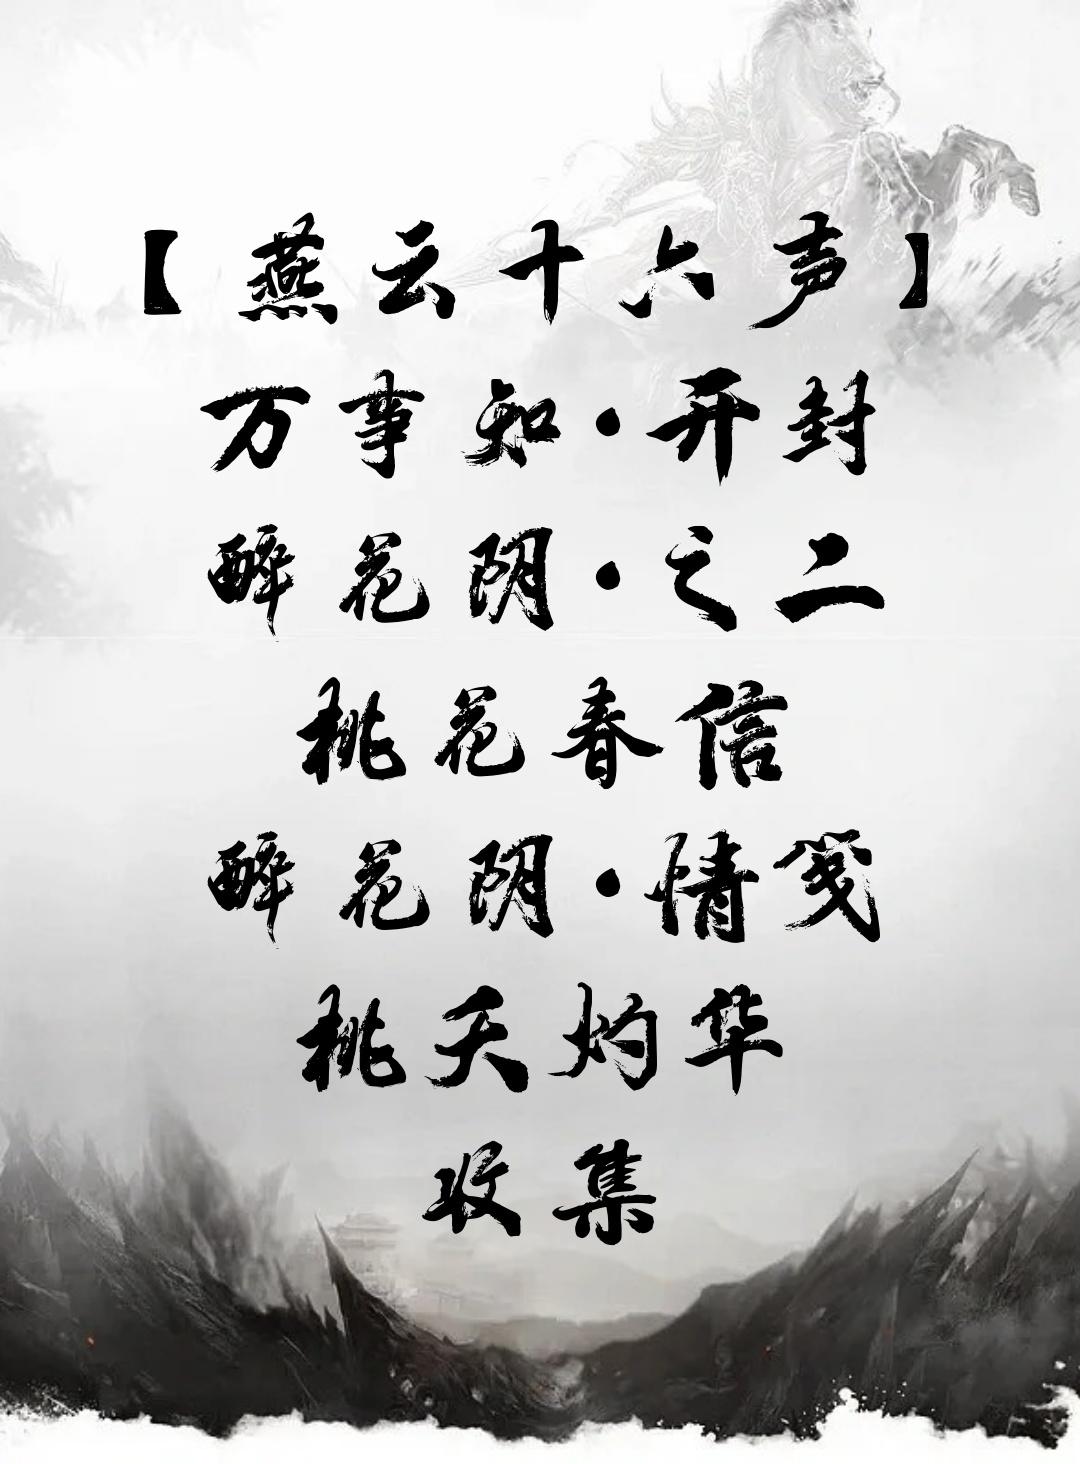 【燕云十六声】
万事知·开封
醉花阴·之二
桃花春信
醉花阴·情笺
桃夭灼华
收集